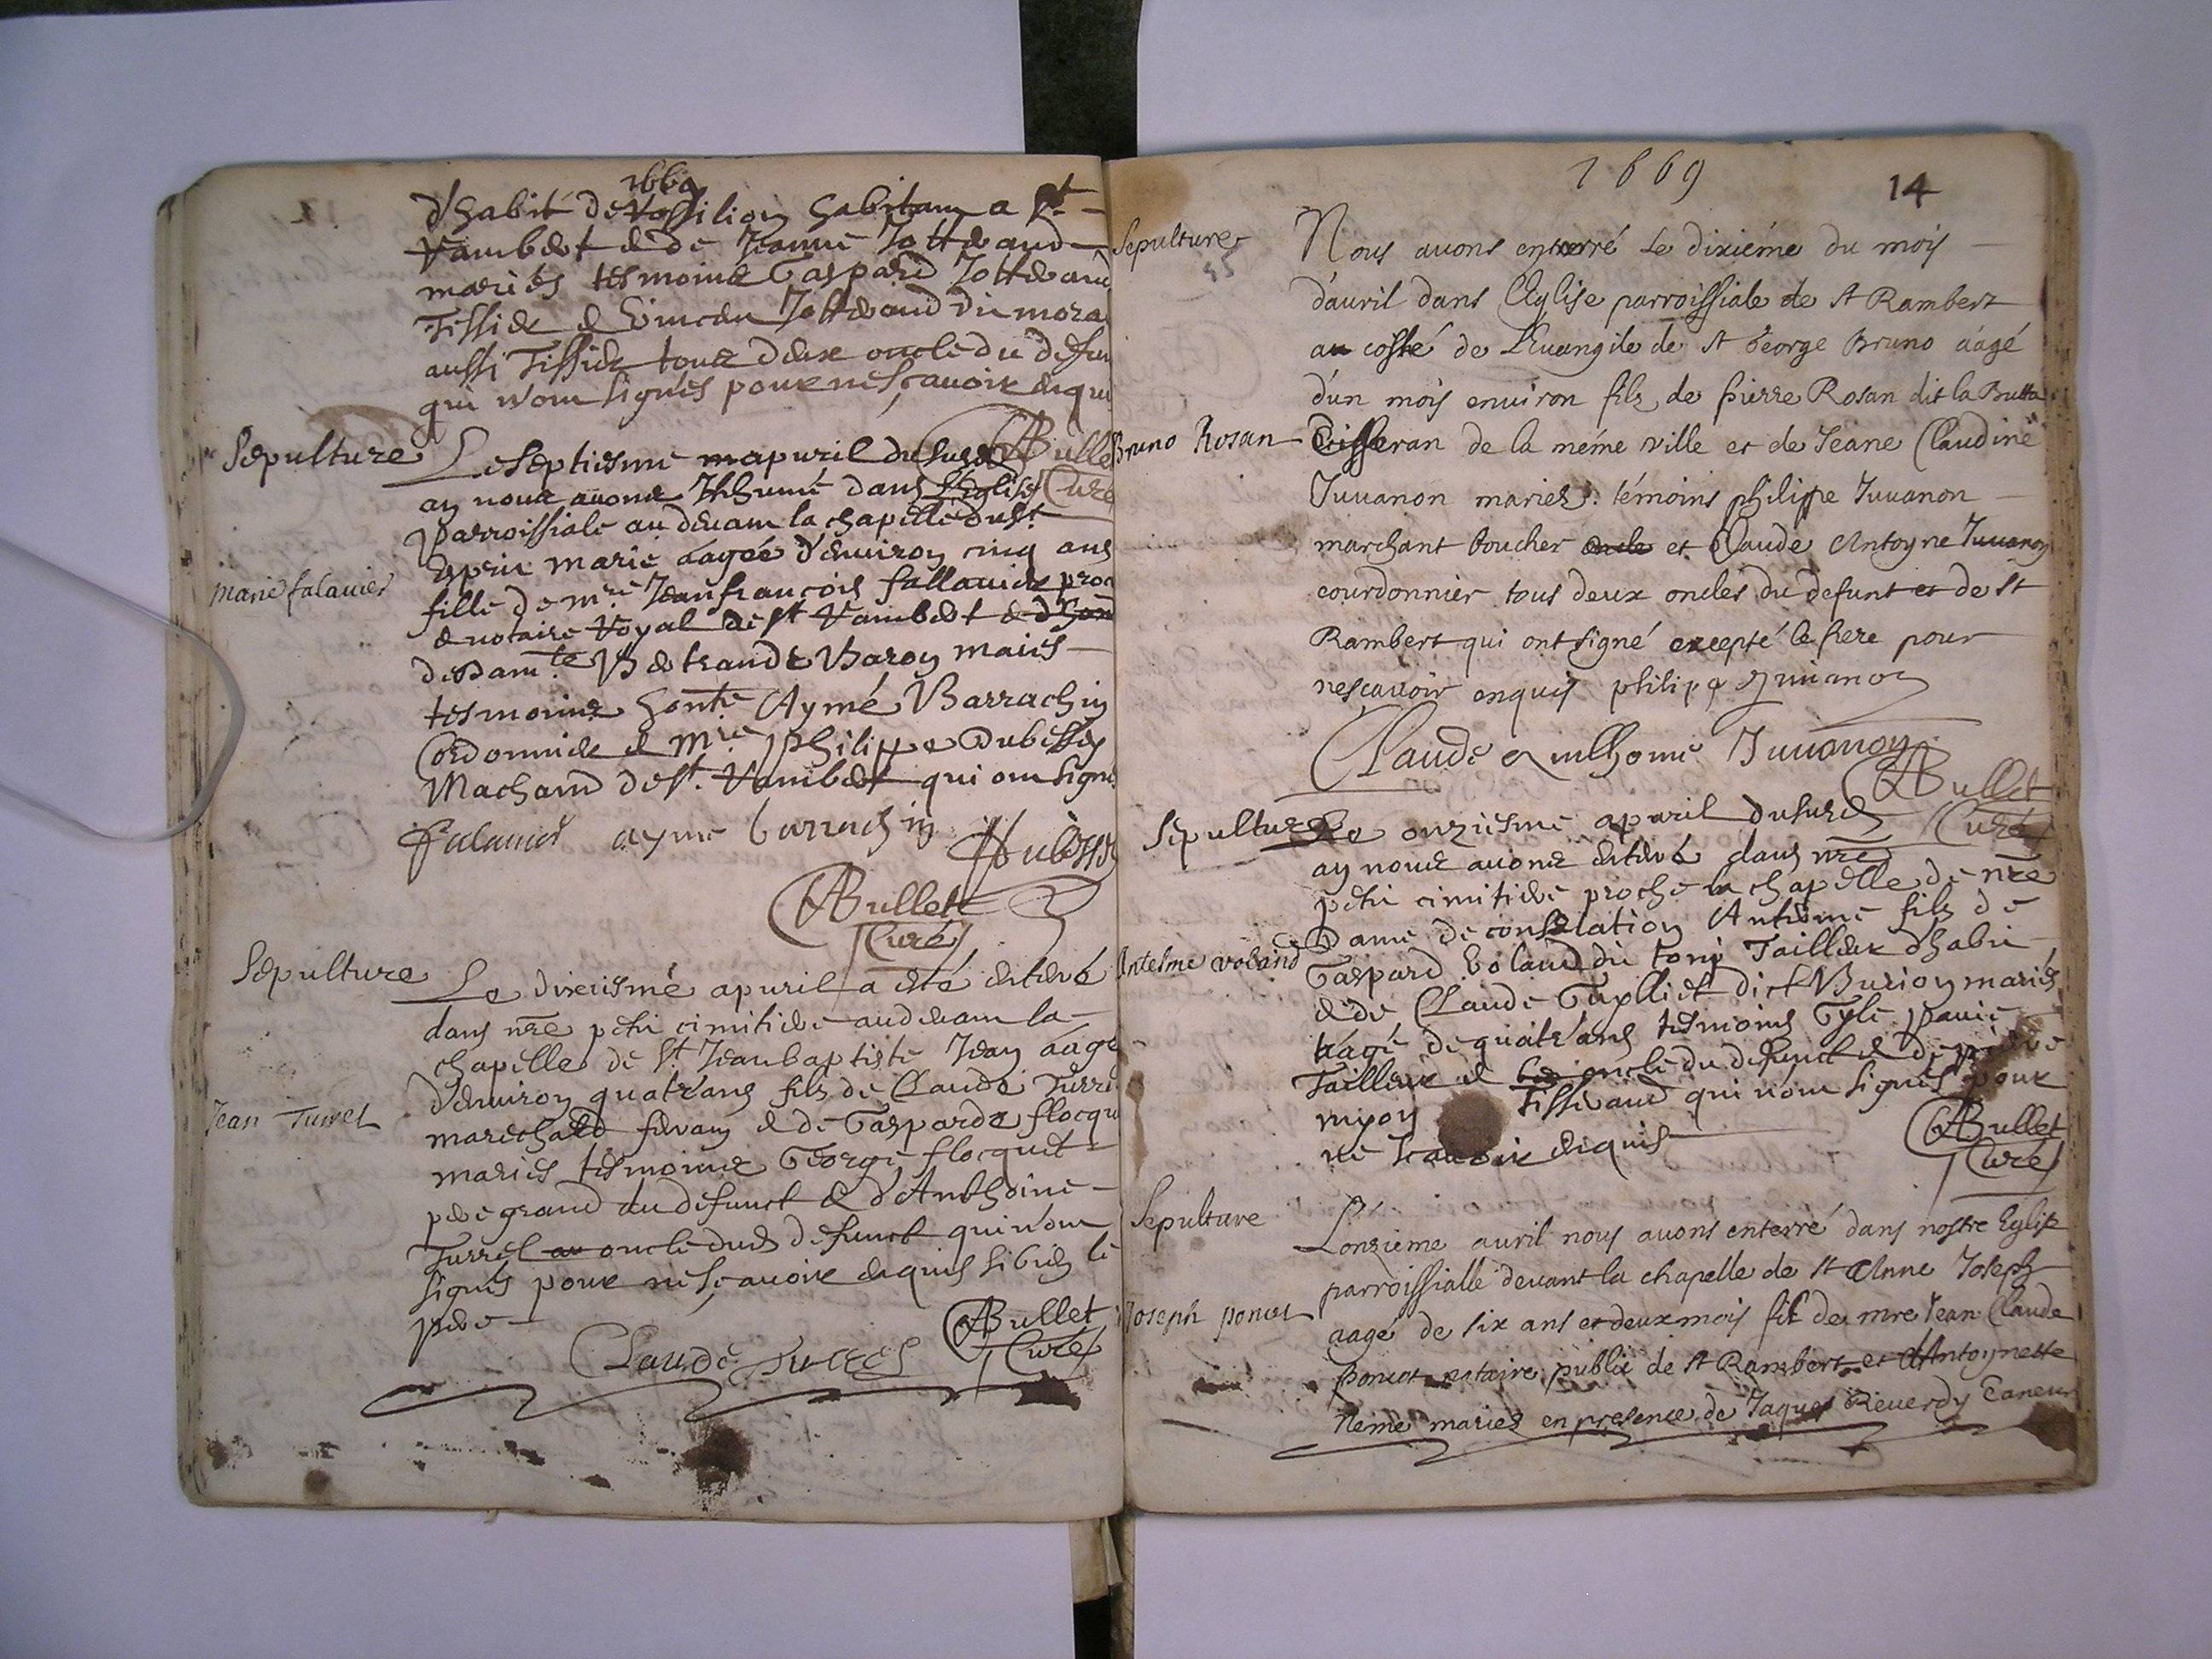 1669
d'habit de Rossilion habitant a St
Rambert & de Jeanne Jotteraud
mariés tesmoins Gaspard Jotterand
Tissier & Jotteraud dit mora
aussi Tissier tous deux oncle du defun
qui n'ont signés pour ne sçavoir enquis
ABullet
Curé
Sepulture
Le septiesme apvril dususd
an nous avons Inhumé dans l'Eglise
parroissiale au devant la chapelle du St
Esprit marie áagée d'environ cinq ans
marie falavier
fille de mre Jean françois fallavier proc
& notaire Royal de St Rambert &
de Dam.te Bertrande Baron mariés
tesmoins hon.te Aymé Barrachin
Cordonnier & Mre Philippe Dubessey
Machand de St. Rambert qui ont signé
falavier ayme barrachin Dubessey
ABullet
Curé
Sepulture
Le dixiesme apuril a esté enterré
dans nre petit cimitiere audevant la
chapelle de St Jean baptiste Jean áagé
d'environ quatr'ans fils de Claude Turrel
Jean Turrel
marechald ferrant & de Gasparde flocquet
mariés tesmoins George flocquet
pere grand du defunct & d'Anthoine
Turrel oncle dud defunct qui n'ont
signés pour ne sçavoir enquis si bien le
pere
ABullet
Curé
Claude Turrel
1669
14
Sepulture
45
Nous auons enterré Le dixiéme du mois
d'auril dans l'Eglise parroissiale de St Rambert
au costé de L'Euangile de St George Bruno áagé
d'un mois enuiron fils de pierre Rosan dit la Butta
Bruno Rosan
Tisseran de la méme ville et de Jeane Claudine
Juuanon mariez: témoins philippe Juuanon
marchant boucher oncle et Claude Antoyne Juuanon
courdonnier tous deux oncles du defunt et de St
Rambert qui ont signé excepté le pere pour
nesçauoir enquis philipe Juuanon
Claude Juuanon
ABullet
Curé
Sepulture
Le onziesme apuril dususd
an nous auons enterré dans nre
petit cimitiere proche la chapelle de nre
Dame de consolation Anthime fils de
Antelme voland
Gaspard Voland dit tony Tailleur d'habit
& de Claude dict Burion mariés
áagé de quatr'ans tesmoins Gyle pavie
Tailleur & oncle du defunct & de pierre
myon Tisserand qui n'ont signés pour
ne scavoir enquis
ABullet
Curé
Sepulture
L'onzieme auril nous auons enterré dans nostre Eglise
parroissialle deuant la chapelle de St Anne Joseph
Joseph poncet
aagé de six ans et deux mois fil de mre Jean Claude
poncet notaire public de St Rambert et d'Antoynette
mariez en presence de Jaques Reuerdy Taneur